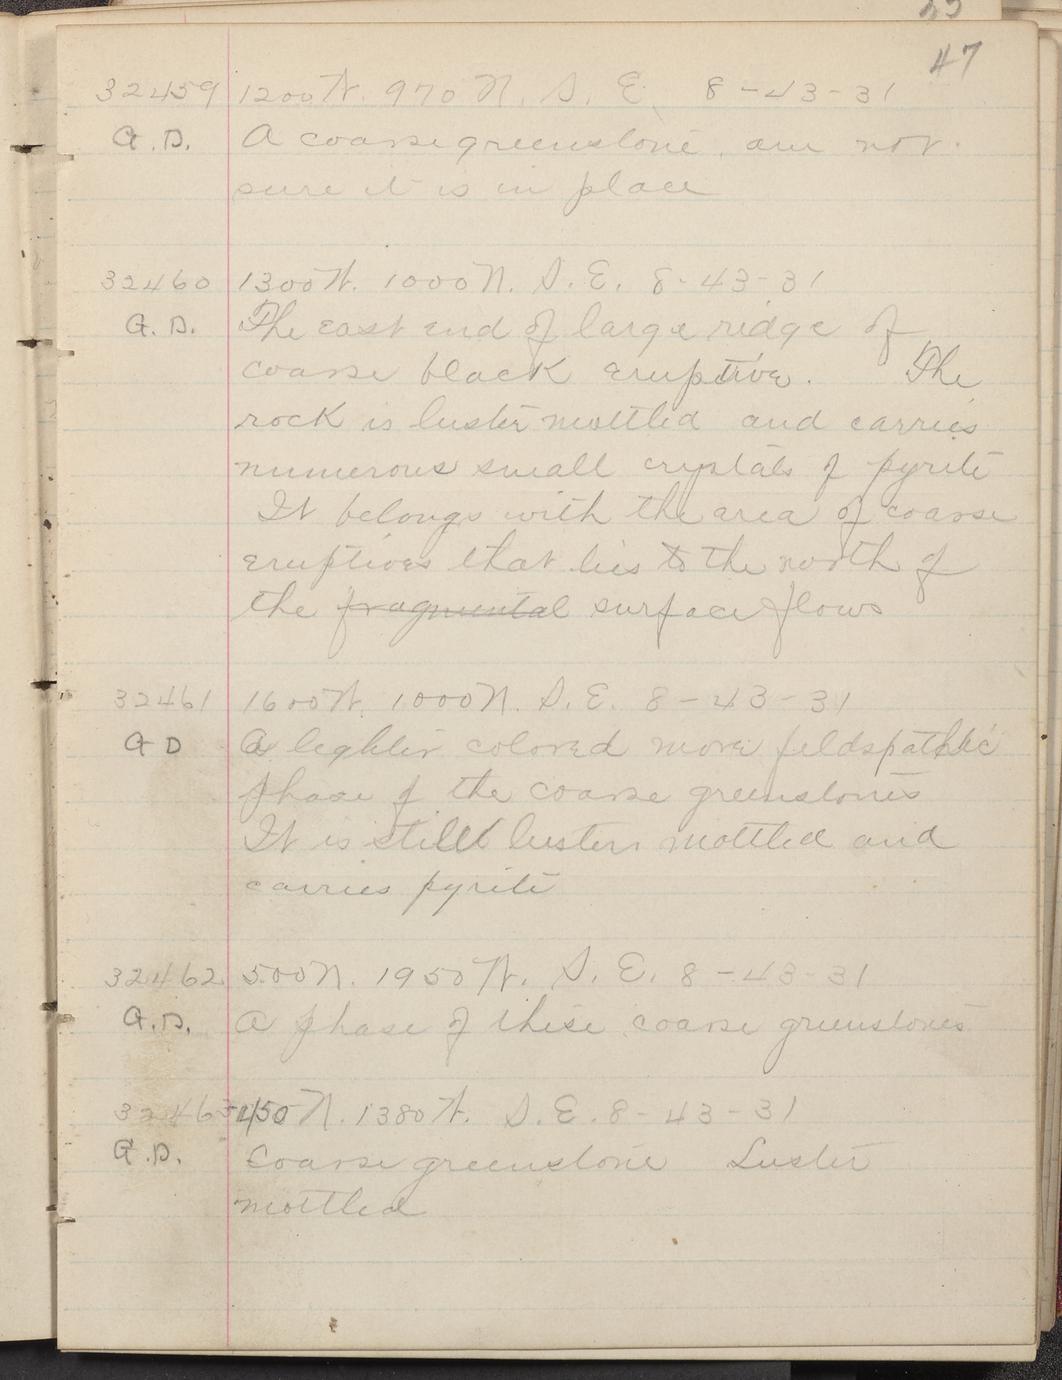 47
32459 1200 W. 970 N. S. E. 8-43-31
G.D. A coarse greenstone. am not
sure it is in place
32460 1300 W. 1000 N. S. E. 8-43-31
G.D. The east end of large ridge of
coarse black eruptive. The
rock is luster mottled and carries
numerous small crystals of pyrite
It belongs with the area of coarse
eruptives that lies to the north of
the fragmental surface flows
32461 1600 W. 1000 N. S. E. 8-43-31
G D A lighter colored more feldspathic
phase of the coarse greenstones
It is still luster mottled and
carries pyrite
32462 500 N. 1950 W. S. E. 8-43-31
G.D. A phase of these coarse greenstones
32463 450 N. 1380 W. S. E. 8-43-31
G.D. Coarse greenstone Luster
mottled